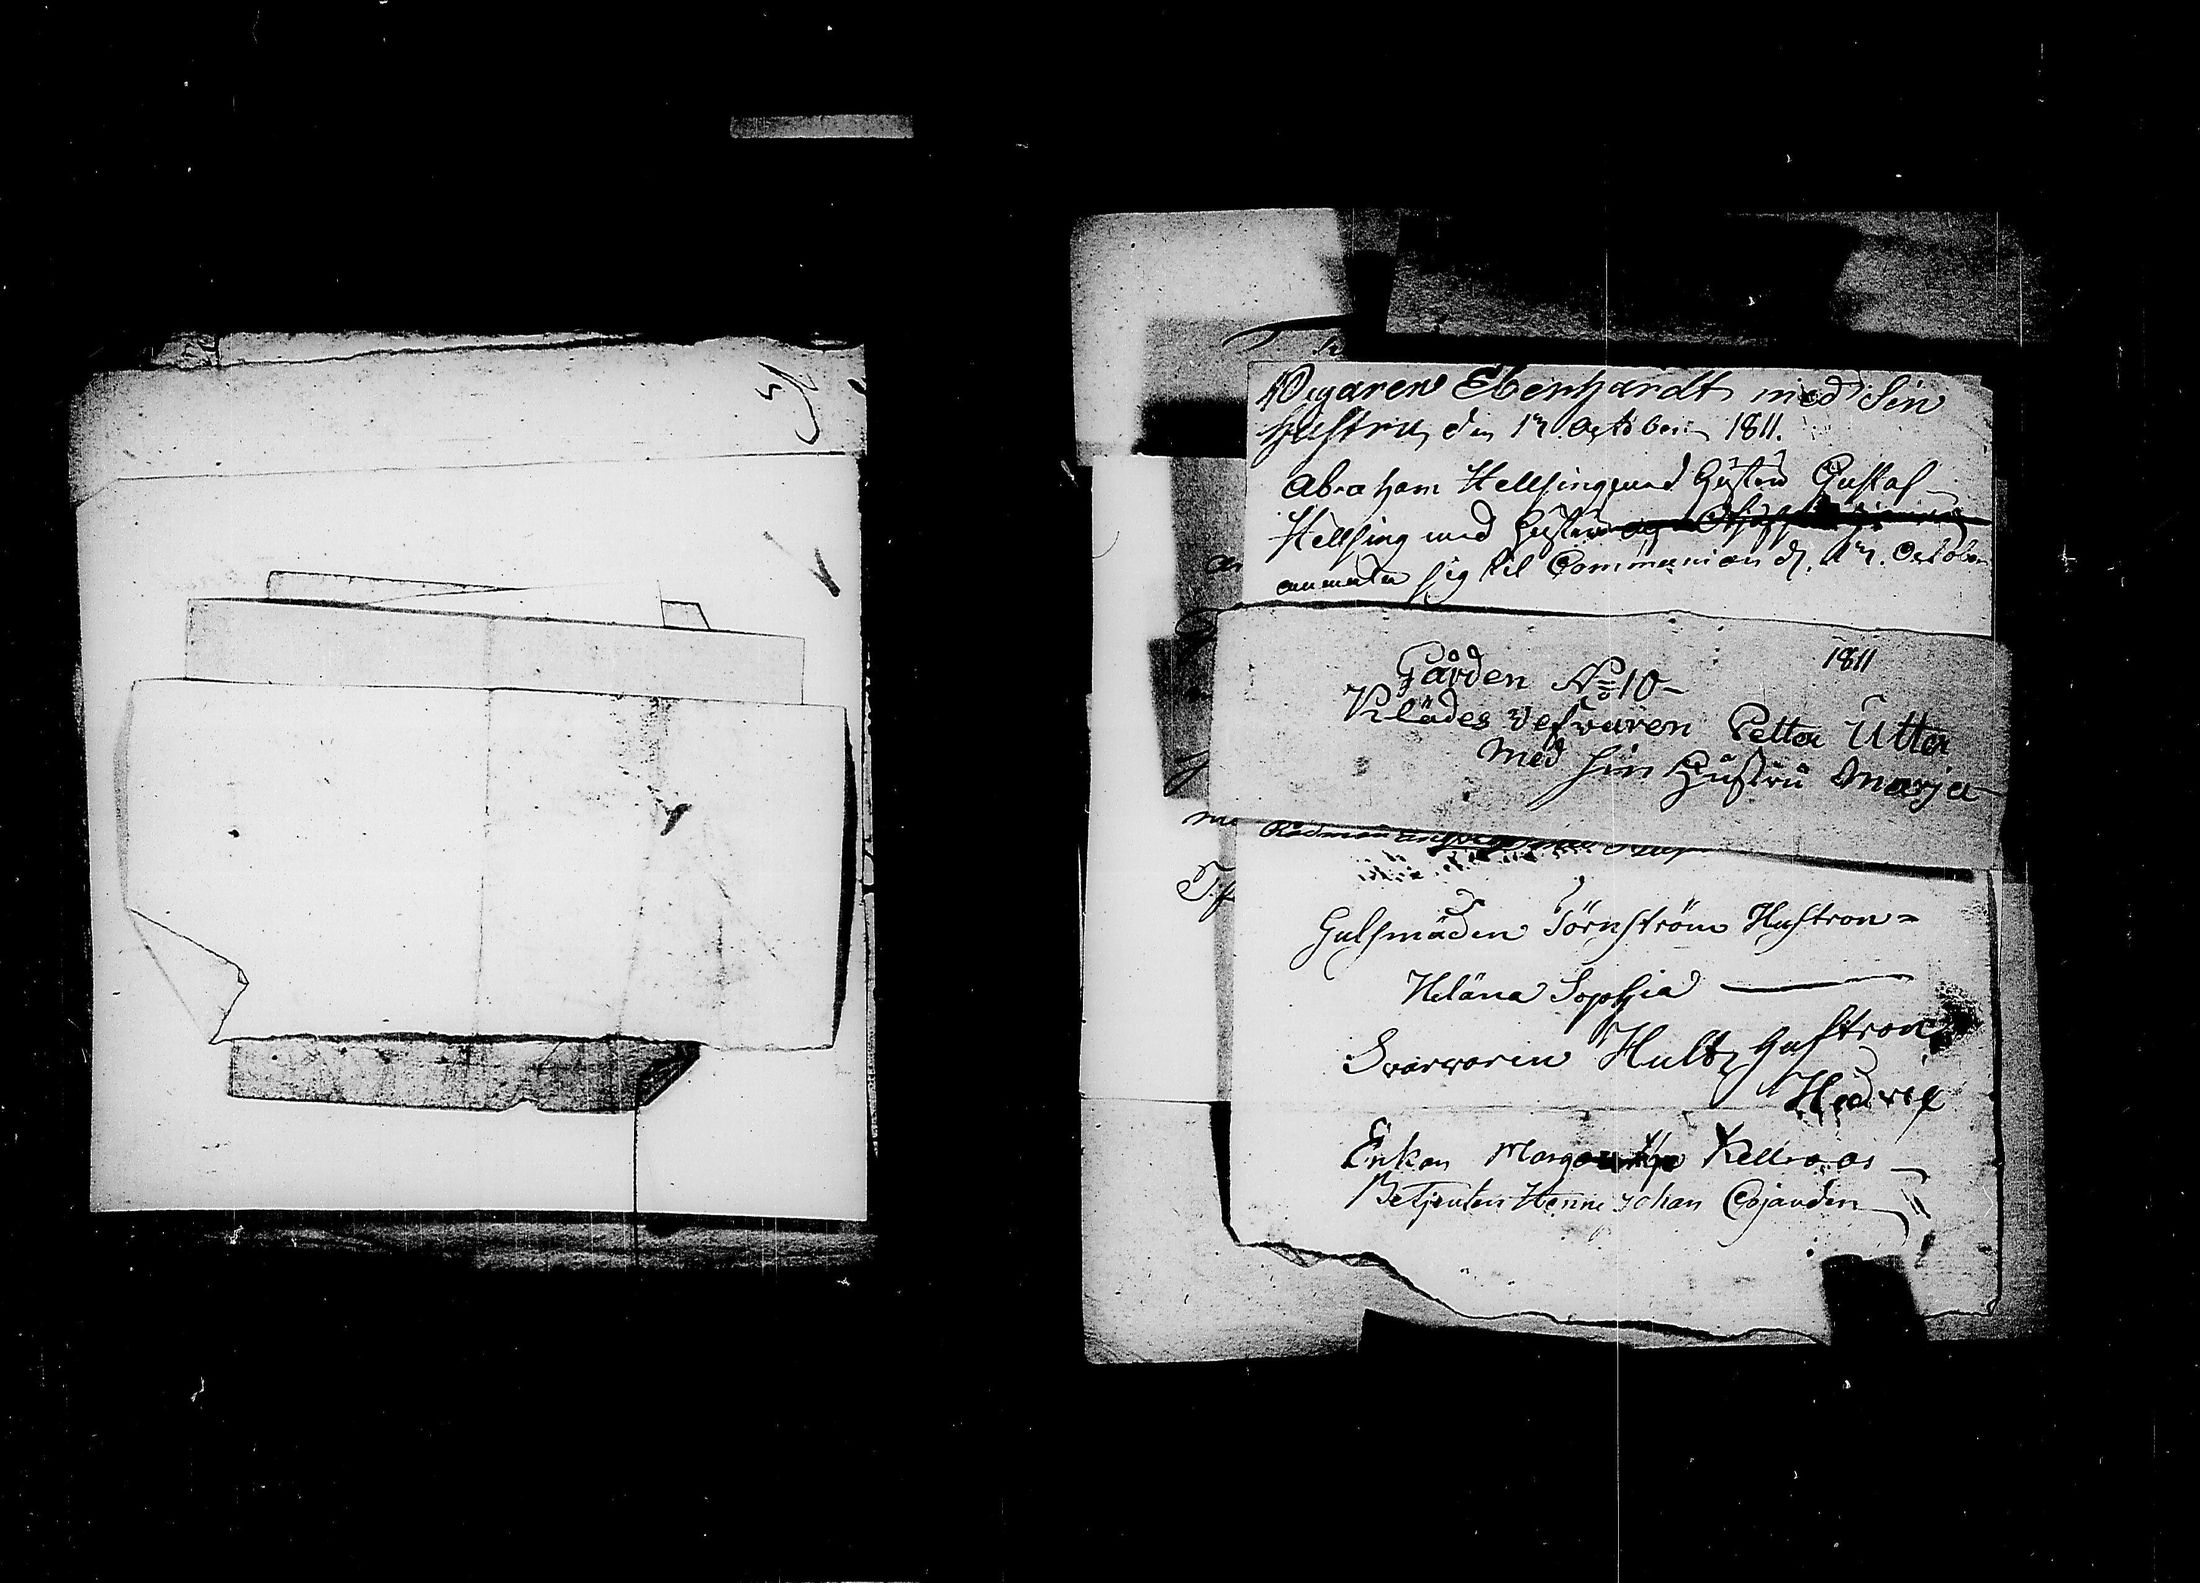 Wegaren Ebenhardt med Sin
hustru, den 17 October 1811.
Abraham Hellsing med Hustru Gustaf
Hellsing med Hustru
anmäla sig til Communion d. 17. October
1811
Gården No 10
Klädes vefvaren Petter Utter
Med sin Hustru Marja
Rådman
Gulsmäden Törnström Hustron =
Heläna Sophia
Svarvaren Hult hustron
Hedvig
Enkan Kellroos
Betjenten Henne Johan Cojanden